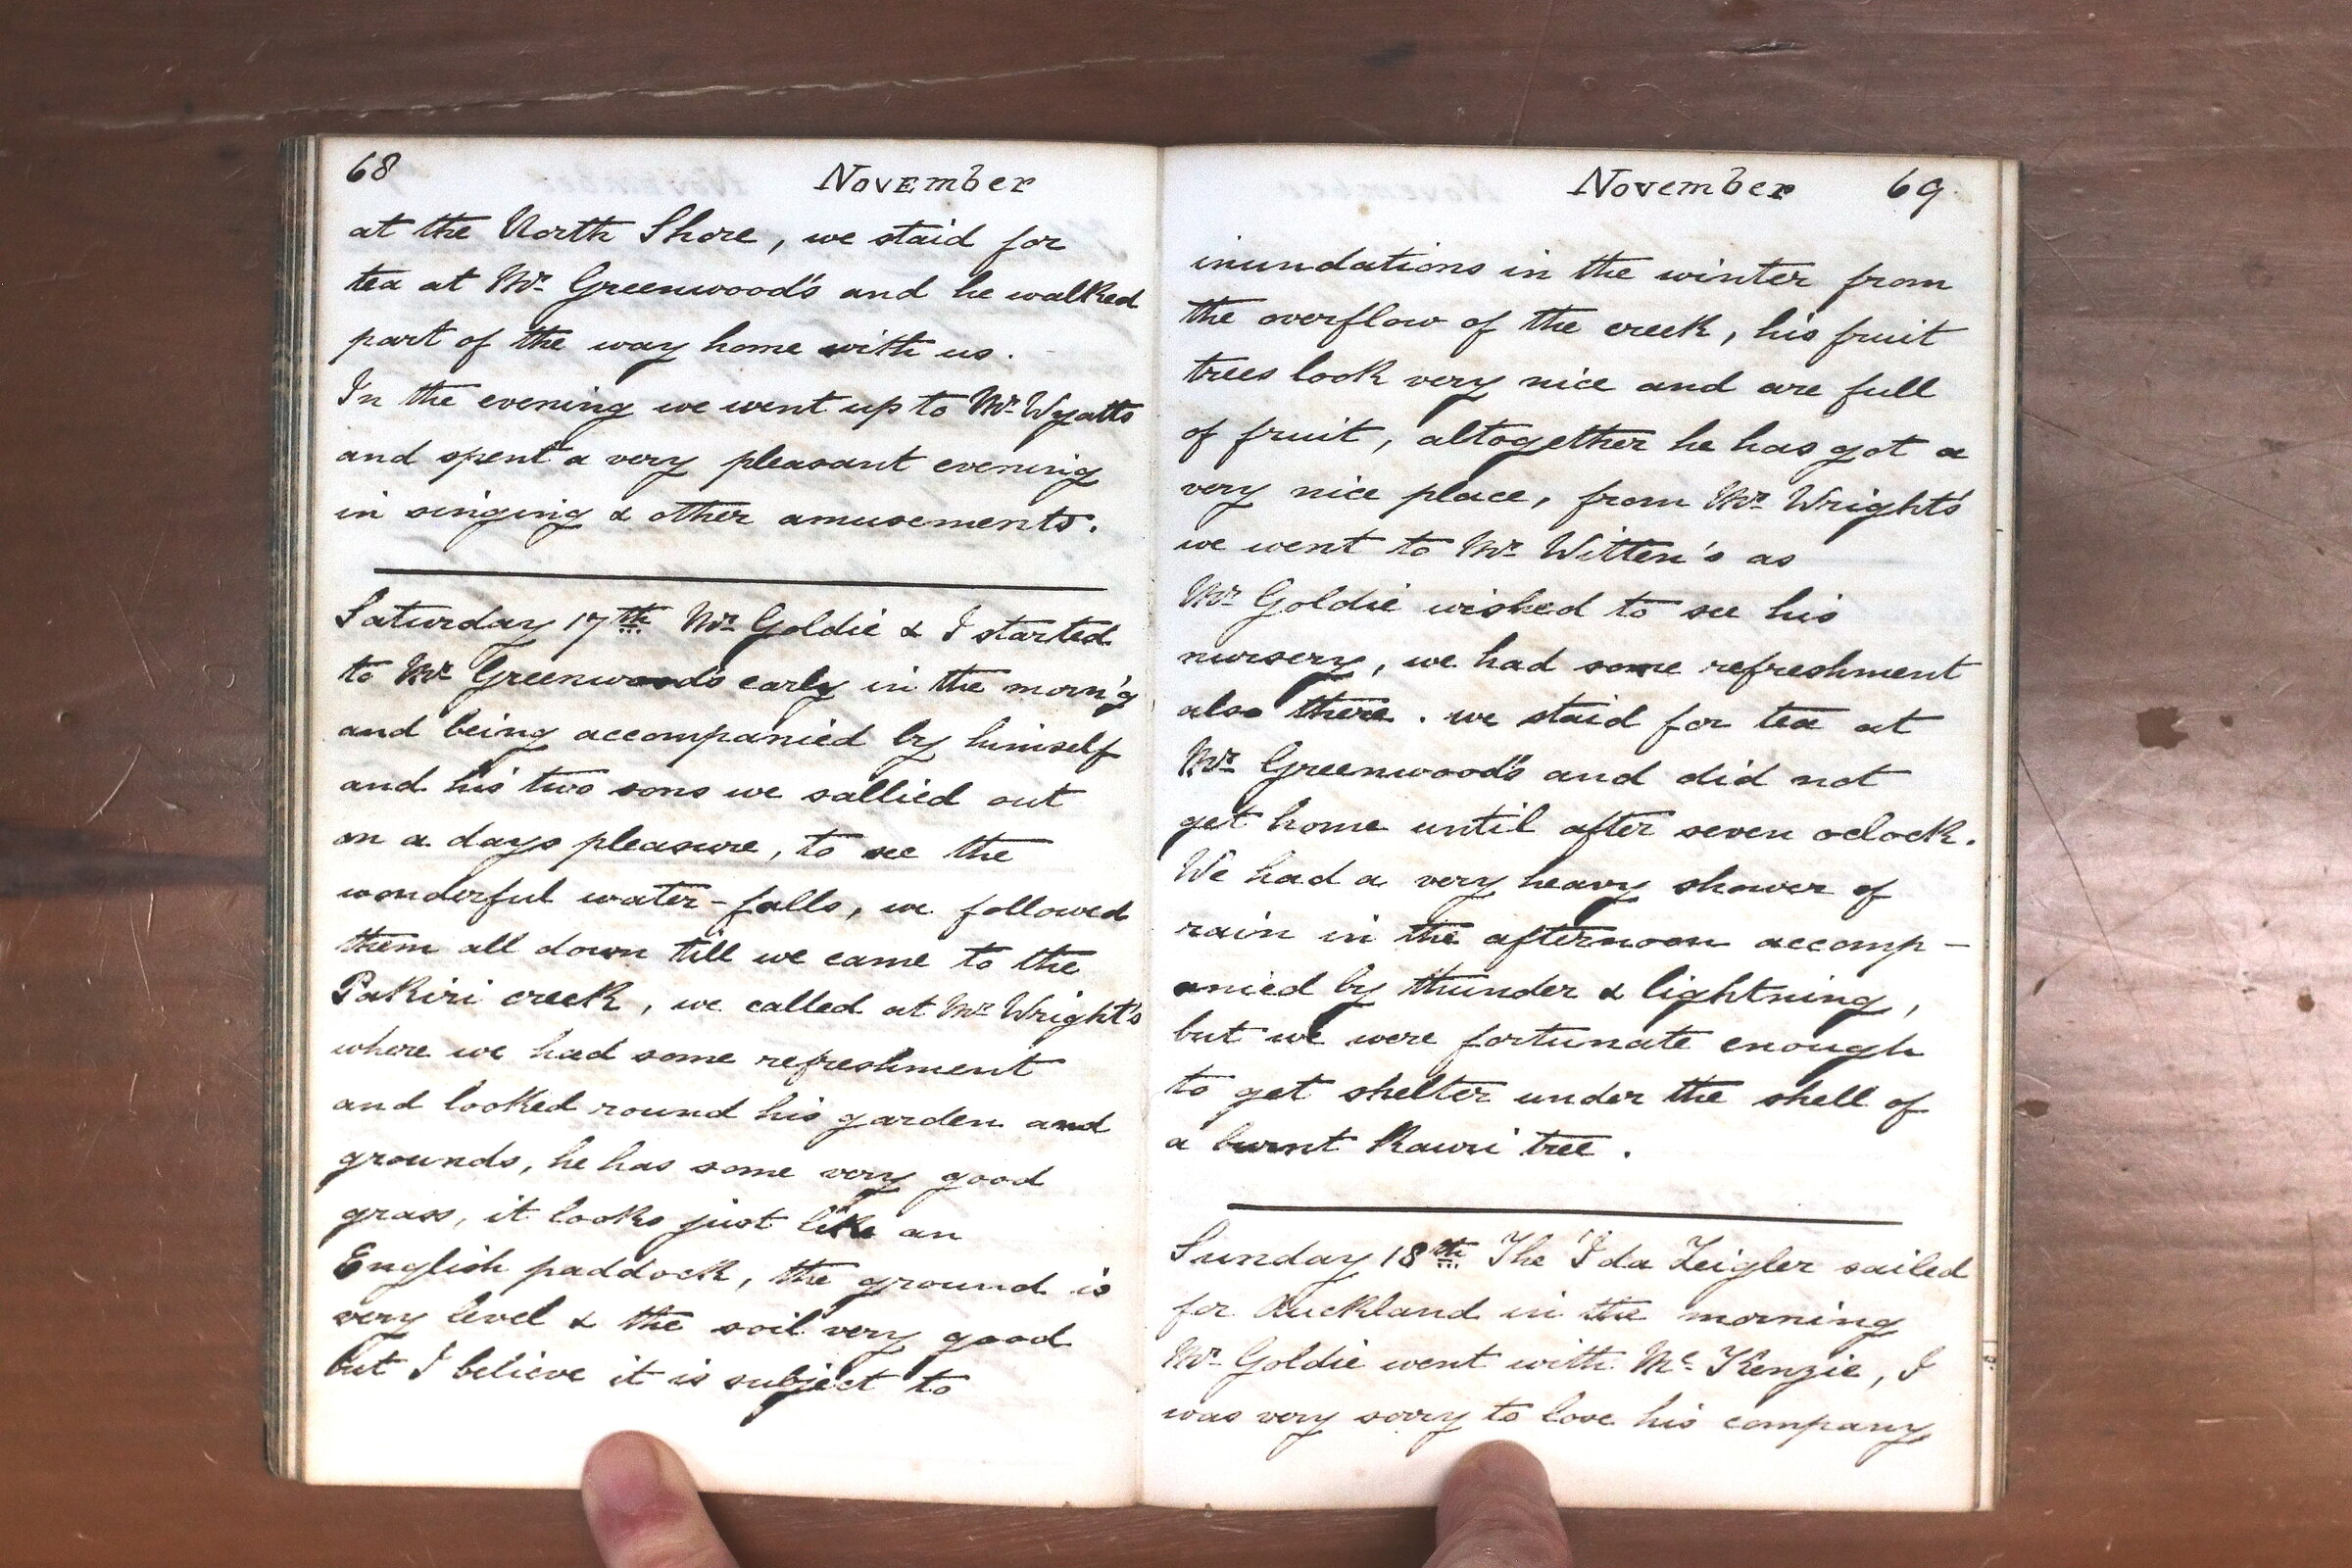 68 November
at the North Shore, we staid for
tea at Mr. Greenwood's and he walked
part of the way home with us.
In the evening we went up to Mr. Wyatts
and spent a very pleasant evening
in singing & other amusements.
Saturday 17th Mr. Goldie & I started
to Mr. Greenwood's early in the morn'g
and being accompanied by himself
and his two sons we sallied out
on a days pleasure, to see the
wonderful water-falls, we followed
them all down till we came to the
Pakiri creek, we called at Mr. Wright's
where we had some refreshment
and looked round his garden and
grounds, he has some very good
grass, it looks just like an
English paddock, the ground is
very level & the soil very good
but I believe it is subject to
November 69
inundations in the winter from
the overflow of the creek, his fruit
trees look very nice and are full
of fruit, altogether he has got a
very nice place, from Mr. Wright's
we went to Mr. Witten's as
Mr. Goldie wished to see his
nursery, we had some refreshment
also there. we staid for tea at
Mr. Greenwood's and did not
get home until after seven oclock.
We had a very heavy shower of
rain in the afternoon accomp-
anied by thunder & lightning,
but we were fortunate enough
to get shelter under the shell of
a burnt Kauri tree.
Sunday 18th The Ida Zeigler sailed
for Auckland in the morning
Mr. Goldie went with Mc. Kenzie, I
was very sorry to lose his company